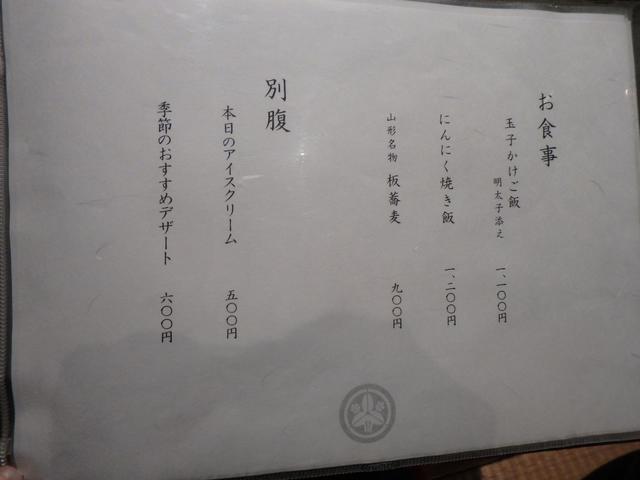 お食事
玉子かけご飯 明太子添え 一、一〇〇円
にんにく焼き飯 一、二〇〇円
山形名物 板蕎麦 九〇〇円
別腹
本日のアイスクリーム 五〇〇円
季節のおすすめデザート 六〇〇円